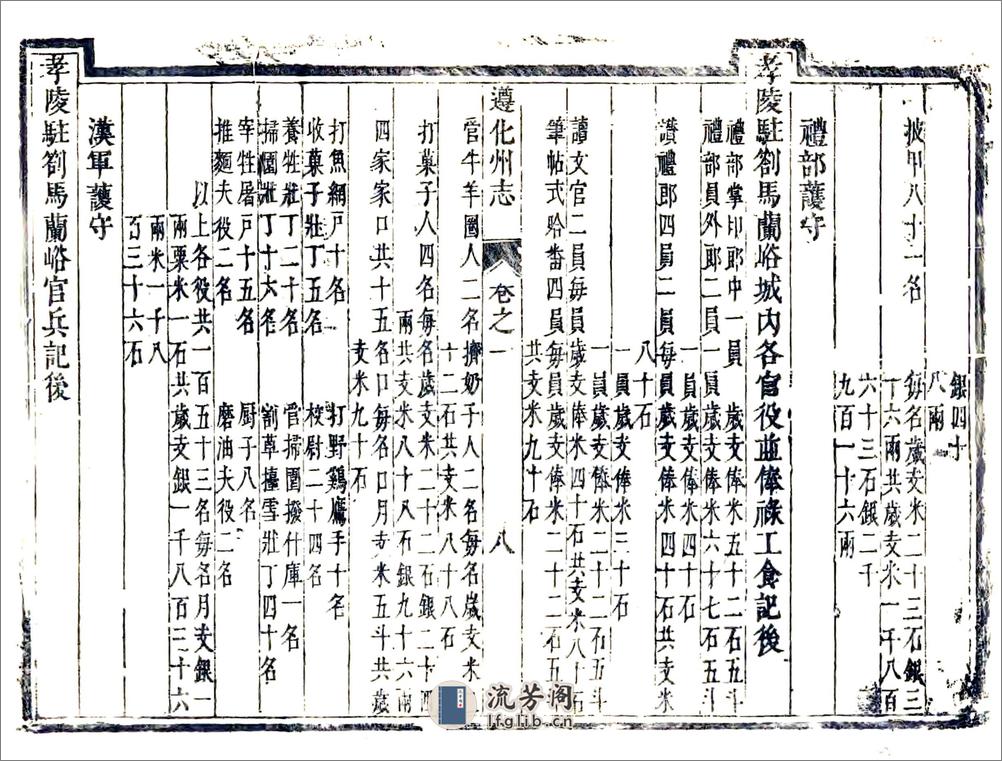 銀四十
八兩
披甲八十一名
每名歲支米二十三石銀三
十六兩共歲支米一千八百
六十三石銀二千
九百一十六兩
禮部護守
孝陵駐劄馬蘭峪城內各官役並俸祿工食記後
禮部掌印郎中一員
歲支俸米五十二石五斗
禮部員外郎二員
一員歲支俸米六十七石五斗
一員歲支俸米四十石
讚禮郎四員
二員歲支俸米四十石共支米
八十石
一員歲支俸米三十石
一員歲支俸米二十二石五斗
讀文官二員每員歲支俸米四十石共支米八十石
筆帖式哈番四員每員歲支俸米二十二石五斗
共支米九十石
遵化州志
卷之一
八
管牛羊圈人二名擠奶子人二名每名歲支米
十二石共支米八十八石
打菓子人四名每名歲支米二十二石銀二十四
兩共支米八十八石銀九十六兩
四家家口共十五名口每名口月支米五斗共歲
支米九十石
打魚網戶十名
打野鷄鷹手十名
收菓子壯丁五名
校尉二十四名
養牲壯丁二十名
管掃圍撥什庫一名
掃圍壯丁十六名
割草擡雪壯丁四十名
宰牲屠戶十五名
厨子八名
推麵夫役二名
磨油夫役二名
以上各役共一百五十三名每名月支銀一
兩粟米一石共歲支銀一千八百三十六
兩米一千八
百三十六石
漢軍護守
孝陵駐劄馬蘭峪官兵記後
流芳阁
lfglib.cn